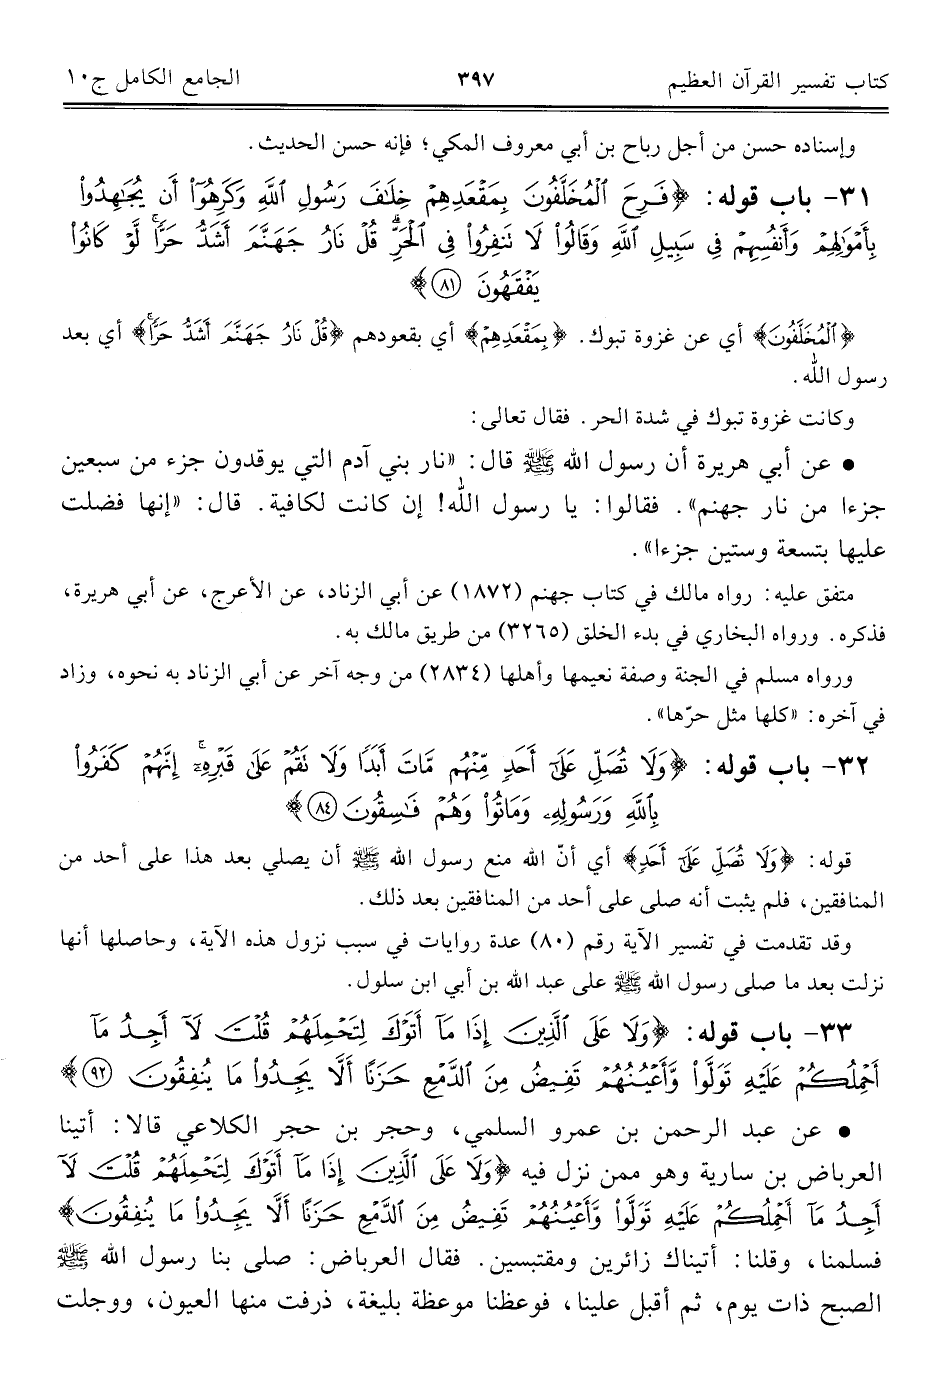 كتاب تفسير القرآن العظيم ٣٩٧ الجامع الكامل ج١٠
وإسناده حسن من أجل رباح بن أبي معروف المكي؛ فإنه حسن الحديث.
٣١- باب قوله: ﴿فَرِحَ ٱلْمُخَلَّفُونَ بِمَقْعَدِهِمْ خِلَٰفَ رَسُولِ ٱللَّهِ وَكَرِهُوٓا۟ أَن يُجَٰهِدُوا۟
بِأَمْوَٰلِهِمْ وَأَنفُسِهِمْ فِى سَبِيلِ ٱللَّهِ وَقَالُوا۟ لَا تَنفِرُوا۟ فِى ٱلْحَرِّ ۗ قُلْ نَارُ جَهَنَّمَ أَشَدُّ حَرًّا ۚ لَّوْ كَانُوا۟
يَفْقَهُونَ ٨١﴾
﴿ٱلْمُخَلَّفُونَ﴾ أي عن غزوة تبوك. ﴿بِمَقْعَدِهِمْ﴾ أي بقعودهم ﴿قُلْ نَارُ جَهَنَّمَ أَشَدُّ حَرًّا ۚ﴾ أي بعد
رسول الله.
وكانت غزوة تبوك في شدة الحر. فقال تعالى:
• عن أبي هريرة أن رسول الله ﷺ قال: «نار بني آدم التي يوقدون جزء من سبعين
جزءا من نار جهنم». فقالوا: يا رسول الله! إن كانت لكافية. قال: «إنها فضلت
عليها بتسعة وستين جزءا».
متفق عليه: رواه مالك في كتاب جهنم (١٨٧٢) عن أبي الزناد، عن الأعرج، عن أبي هريرة،
فذكره. ورواه البخاري في بدء الخلق (٣٢٦٥) من طريق مالك به.
ورواه مسلم في الجنة وصفة نعيمها وأهلها (٢٨٣٤) من وجه آخر عن أبي الزناد به نحوه، وزاد
في آخره: «كلها مثل حرّها».
٣٢- باب قوله: ﴿وَلَا تُصَلِّ عَلَىٰٓ أَحَدٍ مِّنْهُم مَّاتَ أَبَدًا وَلَا تَقُمْ عَلَىٰ قَبْرِهِۦٓ ۚ إِنَّهُمْ كَفَرُوا۟
بِٱللَّهِ وَرَسُولِهِۦ وَمَاتُوا۟ وَهُمْ فَٰسِقُونَ ٨٤﴾
قوله: ﴿وَلَا تُصَلِّ عَلَىٰٓ أَحَدٍ﴾ أي أنّ الله منع رسول الله ﷺ أن يصلي بعد هذا على أحد من
المنافقين، فلم يثبت أنه صلى على أحد من المنافقين بعد ذلك.
وقد تقدمت في تفسير الآية رقم (٨٠) عدة روايات في سبب نزول هذه الآية، وحاصلها أنها
نزلت بعد ما صلى رسول الله ﷺ على عبد الله بن أبي ابن سلول.
٣٣- باب قوله: ﴿وَلَا عَلَى ٱلَّذِينَ إِذَا مَآ أَتَوْكَ لِتَحْمِلَهُمْ قُلْتَ لَآ أَجِدُ مَآ
أَحْمِلُكُمْ عَلَيْهِ تَوَلَّوا۟ وَّأَعْيُنُهُمْ تَفِيضُ مِنَ ٱلدَّمْعِ حَزَنًا أَلَّا يَجِدُوا۟ مَا يُنفِقُونَ ٩٢﴾
• عن عبد الرحمن بن عمرو السلمي، وحجر بن حجر الكلاعي قالا: أتينا
العرباض بن سارية وهو ممن نزل فيه ﴿وَلَا عَلَى ٱلَّذِينَ إِذَا مَآ أَتَوْكَ لِتَحْمِلَهُمْ قُلْتَ لَآ
أَجِدُ مَآ أَحْمِلُكُمْ عَلَيْهِ تَوَلَّوا۟ وَّأَعْيُنُهُمْ تَفِيضُ مِنَ ٱلدَّمْعِ حَزَنًا أَلَّا يَجِدُوا۟ مَا يُنفِقُونَ﴾
فسلمنا، وقلنا: أتيناك زائرين ومقتبسين. فقال العرباض: صلى بنا رسول الله ﷺ
الصبح ذات يوم، ثم أقبل علينا، فوعظنا موعظة بليغة، ذرفت منها العيون، ووجلت